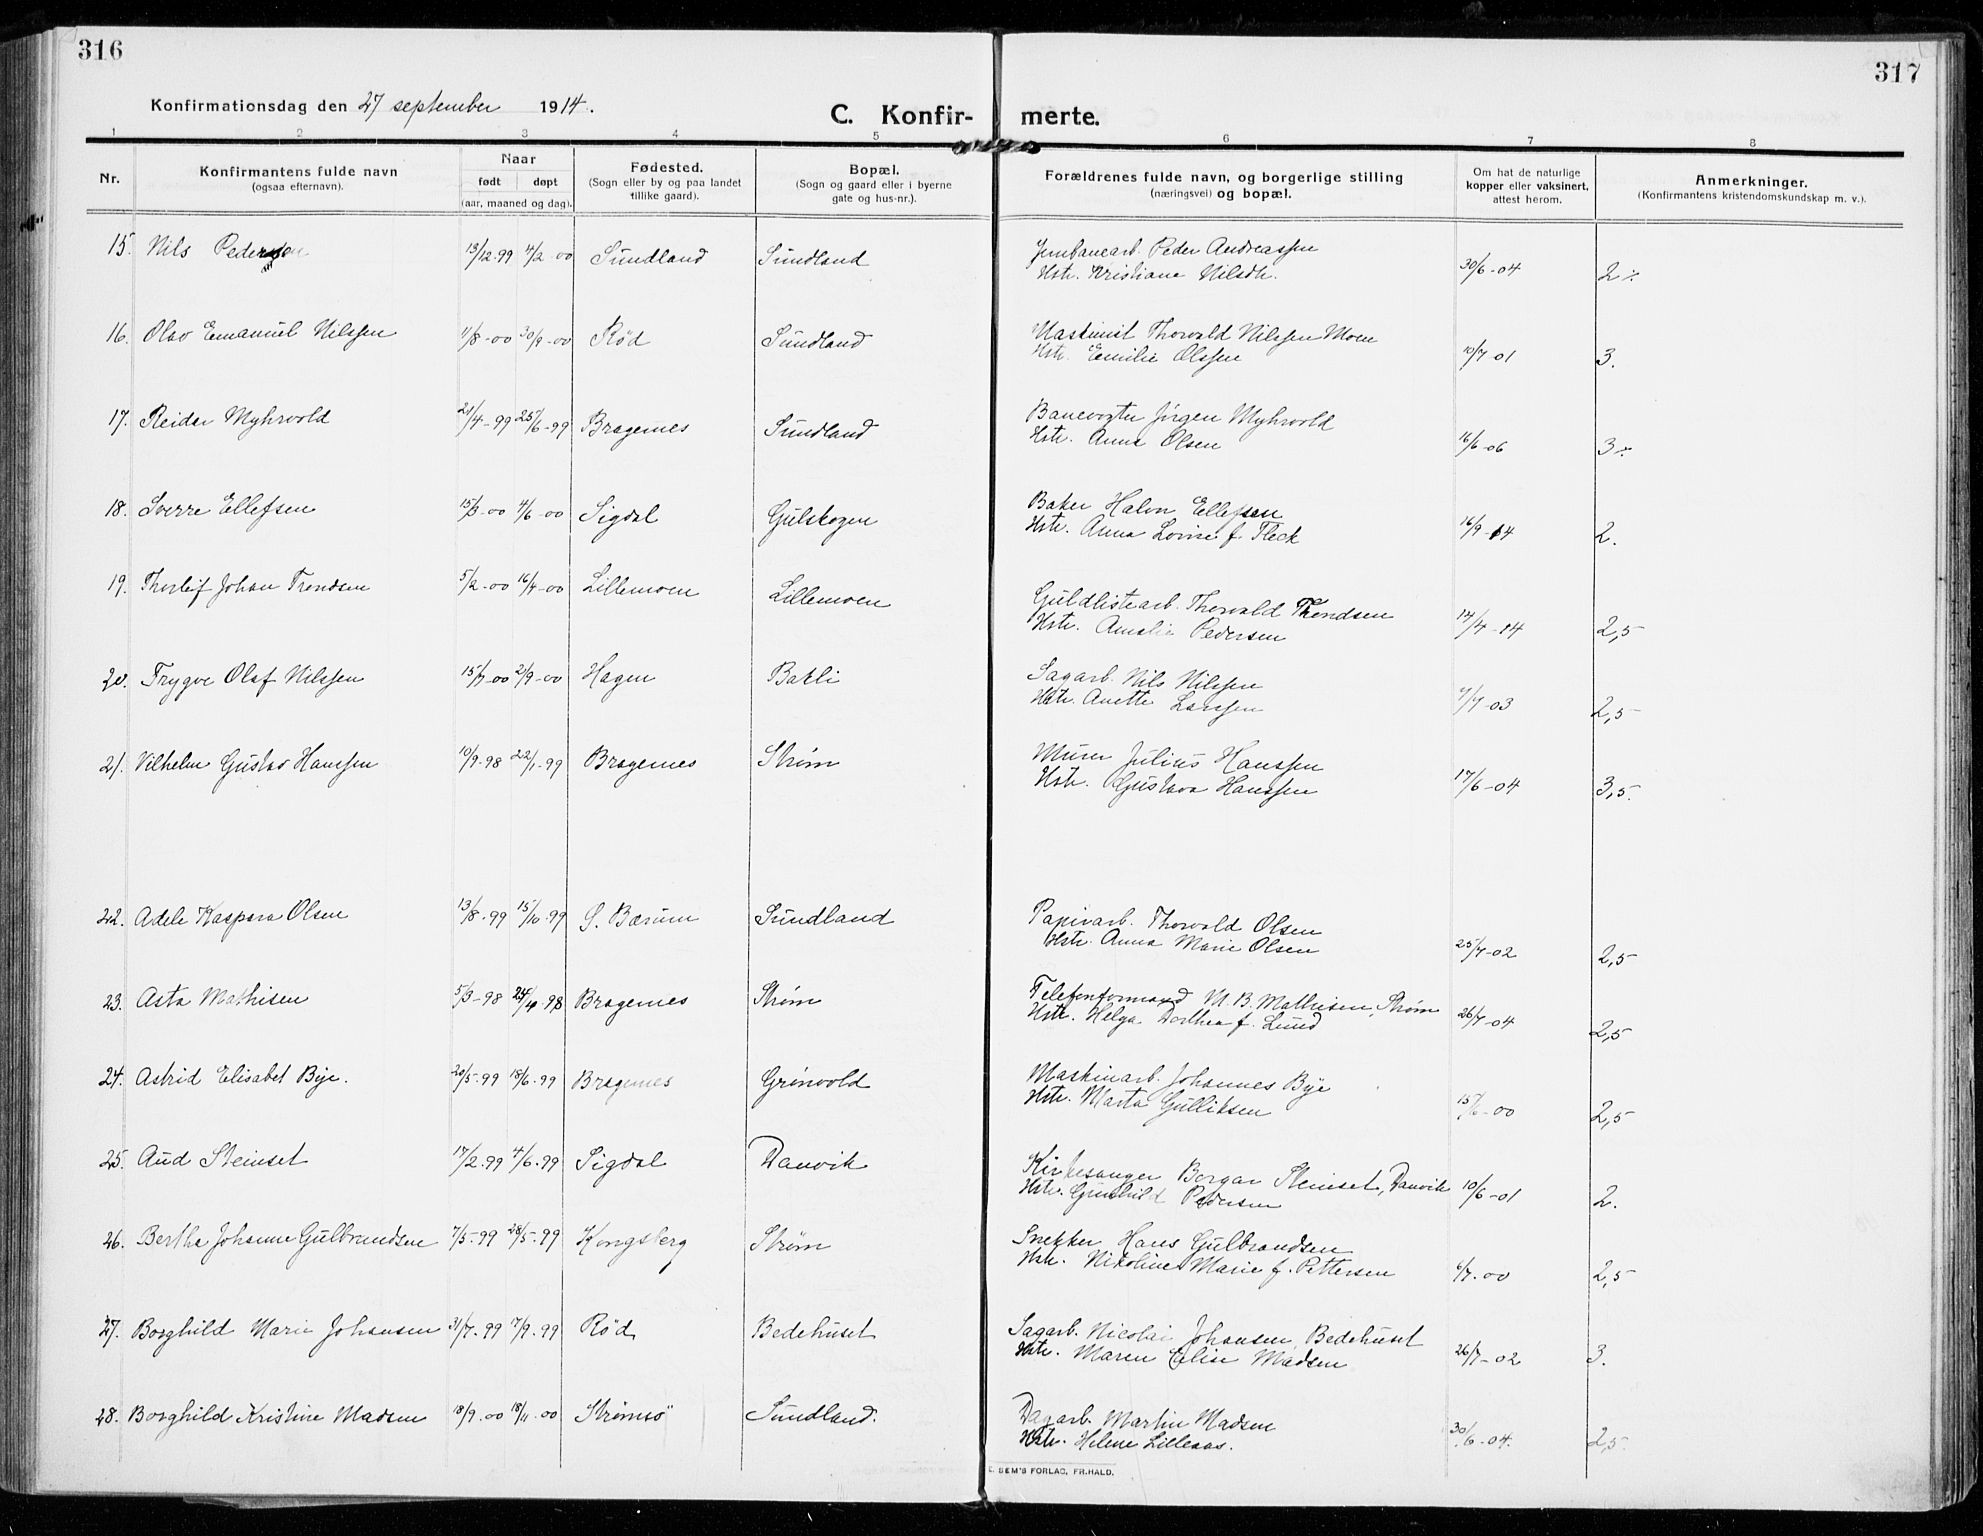 316
317
Konfirmationsdag den 27 september 1914.
C. Konfirmerte.
1 2 3 4 5 6 7 8
Nr.
Konfirmantens fulde navn
(ogsaa efternavn).
Naar
født døpt
(aar, maaned og dag).
Fødested.
(Sogn eller by og paa landet
tillike gaard).
Bopæl.
(Sogn og gaard eller i byerne
gate og hus-nr.).
Forældrenes fulde navn, og borgerlige stilling
(næringsvei) og bopæl.
Om hat de naturlige
kopper eller vaksinert,
attest herom.
Anmerkninger.
(Konfirmantens kristendomskundskap m. v.).
15. Nils Pedersen 13/12-99 4/2-00 Sundland Sundland Jernbanearb. Peder Andreassen
Hstr. Kristiane Nilsdtr. 30/6-04 2 ÷
16. Olav Emanuel Nilssen 11/8-00 30/9-00 Rød Sundland Maskinist Thorvald Nilssen Moen
Hstr. Emilie Olssen 10/7-01 3.
17. Reidar Myhrvold 21/4-99 25/6-99 Bragernes Sundland Banevogter Jörgen Myhrvold
Hstr. Anna Olsen 16/6-06 3 ÷
18. Sverre Ellefsen 15/3-00 4/6-00 Sigdal Gulskogen Baker Halvor Ellefsen
Hstr. Anna Lovise f. Fleck 16/9-14 2.
19. Thorleif Johan Trondsen 5/2-00 16/4-00 Lillemoen Lillemoen Guldlistearb. Thorvald Trondsen
Hstr. Amalie Pedersen 14/4-14 2,5
20. Trygve Olaf Nilssen 15/7-00 2/9-00 Hagen Bakli Sagarb. Nils Nilssen
Hstr. Anette Larssen 4/7-03 2,5
21. Vilhelm Gustav Hanssen 10/9-98 22/1-99 Bragernes Strøm Murer Julius Hanssen
Hstr. Gustava Hanssen 17/6-04 3,5.
22. Adele Kaspara Olsen 13/8-99 15/10-99 S. Bærum Sundland Papirarb. Thorvald Olsen
Hstr. Anna Marie Olsen 25/7-02 2,5
23. Asta Mathisen 5/3-98 24/4-98 Bragernes Strøm Telefonformand M. B. Mathisen, Strøm
Hstr. Helga Dorthea f. Lund 26/7-04 2,5
24. Astrid Elisabet Bye. 20/5-99 18/6-99 Bragernes Grönvold Maskinarb. Johannes Bye
Hstr. Marta Gulliksen 15/6-00 2,5
25. Aud Steinset 17/2-99 4/6-99 Sigdal Danvik Kirkesanger Borgar Steinset, Danvik
Hstr. Gunhild Pedersen 10/6-01 2.
26. Berthe Johanne Gulbrandsen 7/5-99 28/5-99 Kongsberg Strøm Snekker Hans Gulbrandsen
Hstr. Nikoline Marie f. Pettersen 6/7-00 2,5
27. Borghild Marie Johansen 31/7-99 17/9-99 Rød Bedehuset Sagarb. Nicolai Johansen, Bedehuset
Hstr. Maren Elise Madsen 26/7-02 3.
28. Borghild Kristine Madsen 18/9-00 18/11-00 Strømsö Sundland. Dagarb. Martin Madsen
Hstr. Helene Lilleaas. 30/6-04. 2,5.
E. SEM'S FORLAG, FR.HALD.